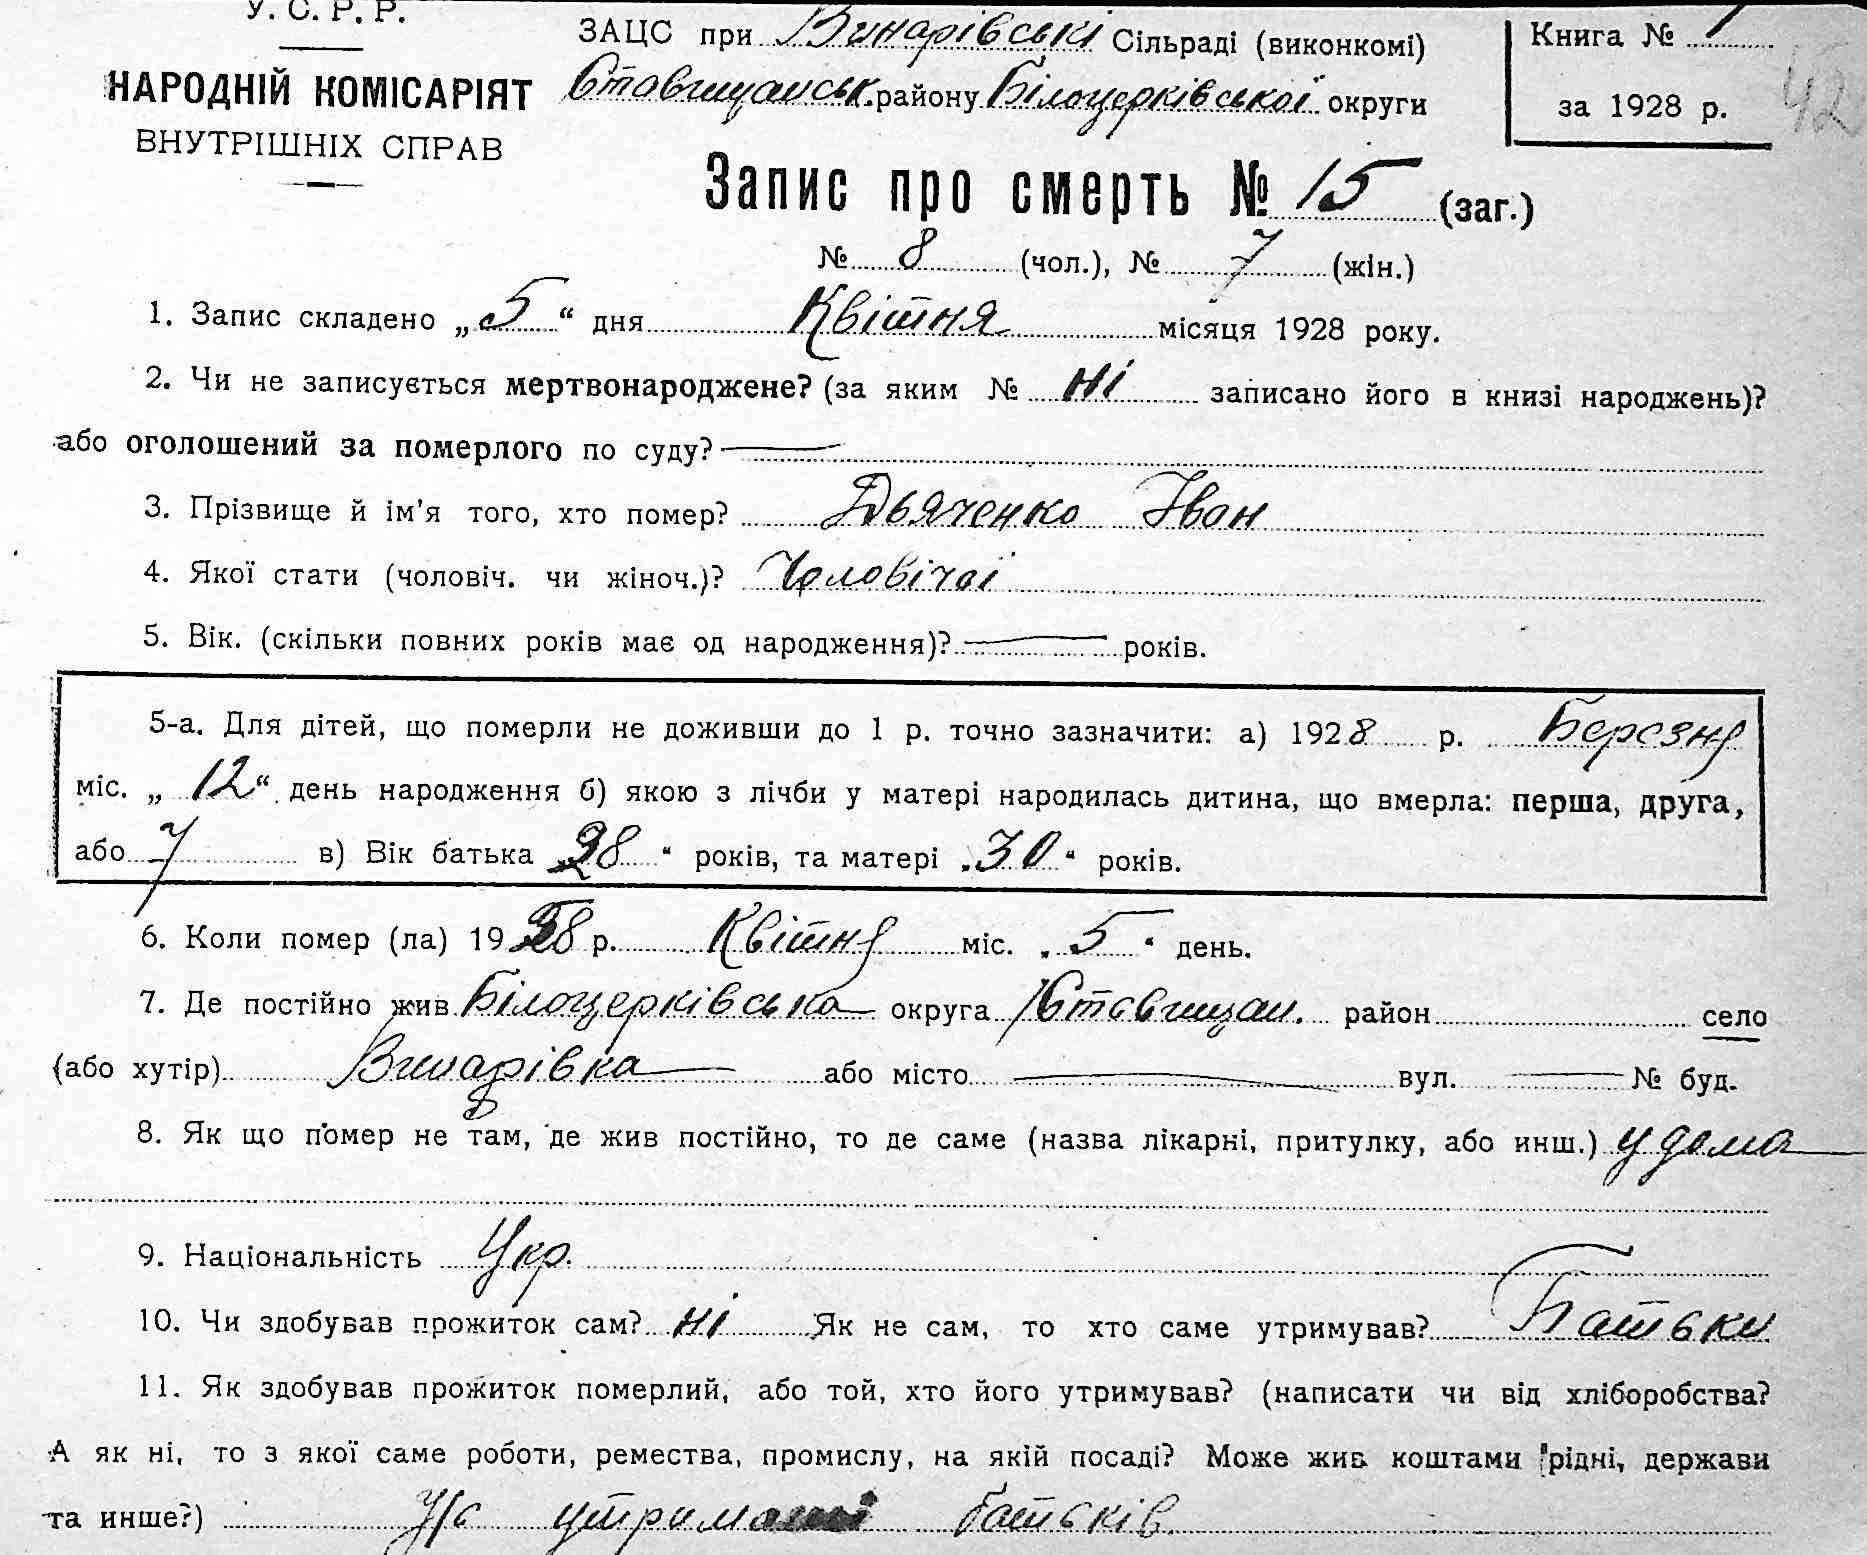 У. С. Р. Р.
НАРОДНІЙ КОМІСАРІЯТ
ВНУТРІШНІХ СПРАВ
ЗАЦС при Винарівські Сільраді (виконкомі)
Ставищанськ. району Білоцерківської округи
Книга № 1
за 1928 р.
42
Запис про смерть № 15 (заг.)
№ 8 (чол.), № 7 (жін.)
1. Запис складено „5“ дня Квітня місяця 1928 року.
2. Чи не записується мертвонароджене? (за яким № ні записано його в книзі народжень)?
або оголошений за померлого по суду? —
3. Прізвище й ім'я того, хто помер? Дьяченко Іван
4. Якої стати (чоловіч. чи жіноч.)? Чоловічої
5. Вік. (скільки повних років має од народження)? — років.
5-а. Для дітей, що померли не доживши до 1 р. точно зазначити: а) 1928 р. Березня
міс. „12“ день народження б) якою з лічби у матері народилась дитина, що вмерла: перша, друга,
або 7 в) Вік батька „38“ років, та матері „30“ років.
6. Коли помер (ла) 1928 р. Квітня міс. „5“ день.
7. Де постійно жив Білоцерківська округа Ставищан. район село
(або хутір) Винарівка — або місто — вул. — № буд.
8. Як що помер не там, де жив постійно, то де саме (назва лікарні, притулку, або инш.) у дома
9. Національність Укр.
10. Чи здобував прожиток сам? ні Як не сам, то хто саме утримував? Батьки
11. Як здобував прожиток померлий, або той, хто його утримував? (написати чи від хліборобства?
А як ні, то з якої саме роботи, ремества, промислу, на якій посаді? Може жив коштами рідні, держави
та инше?) утриманні батьків